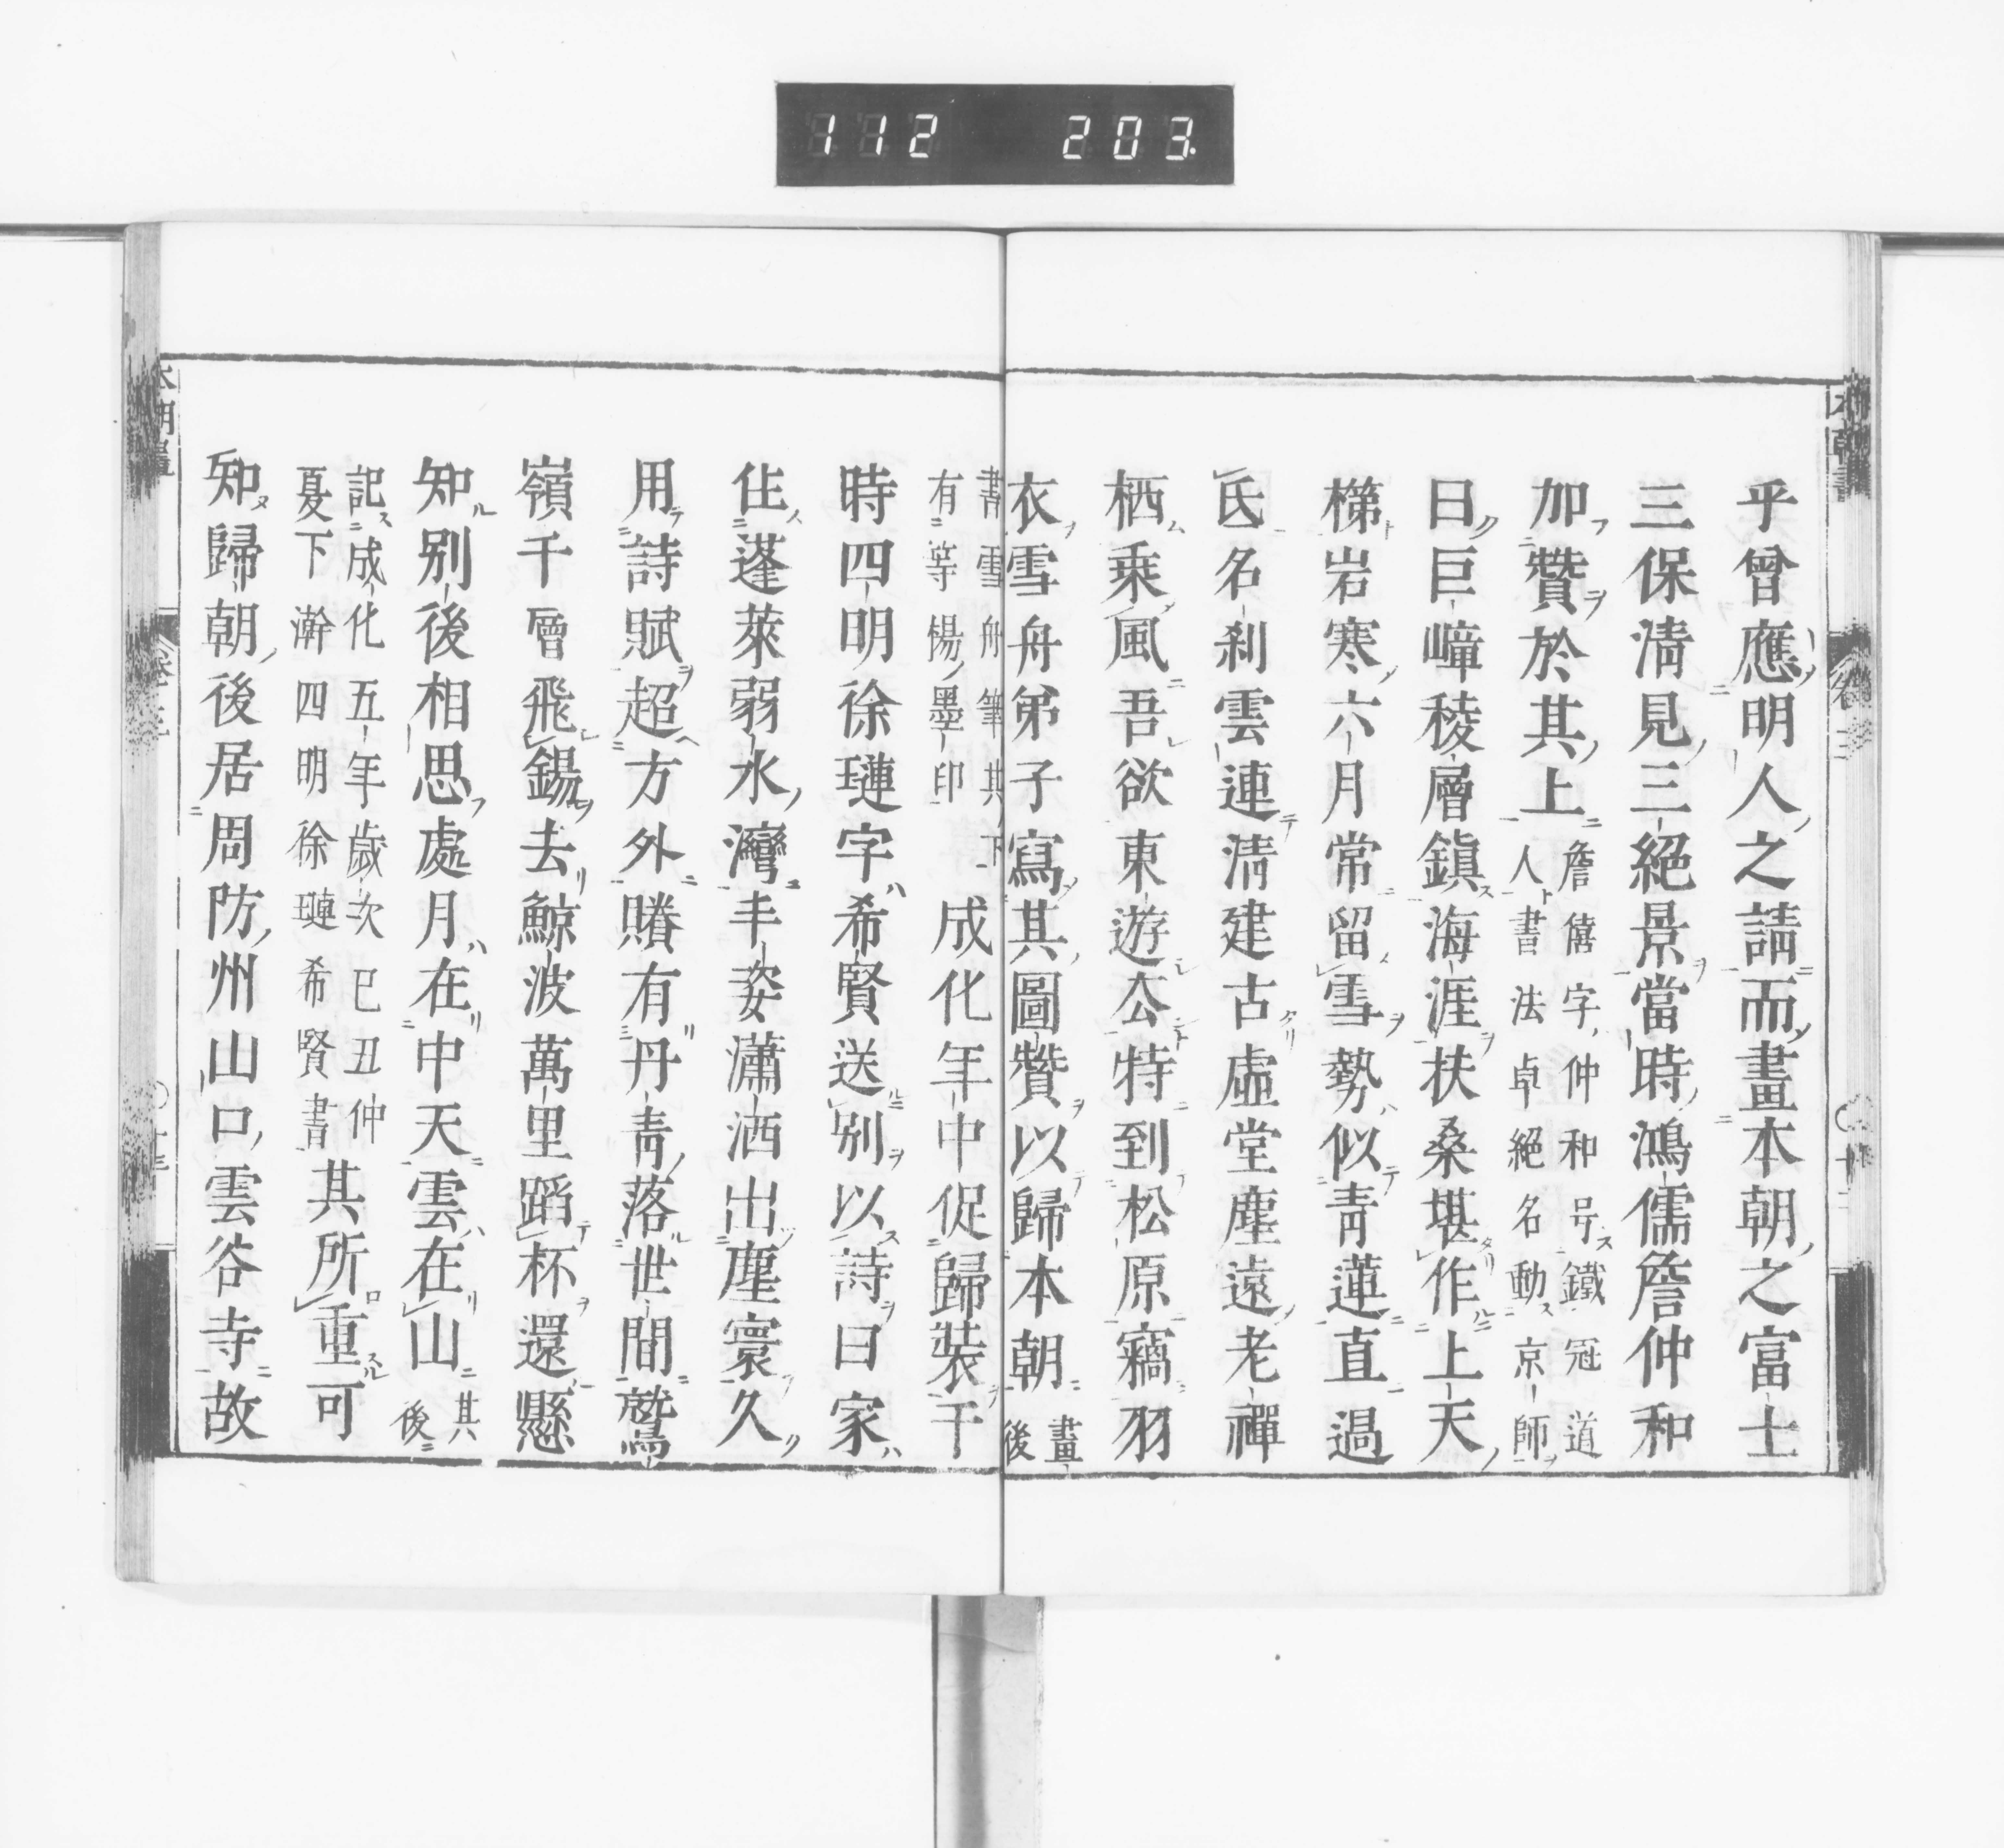 112 203.
乎曾應明人之請而畫本朝之富士
三保清見三絕景當時鴻儒詹仲和
加贊於其上詹僖字仲和号鐵冠道
人書法卓絕名動京師
曰巨嶂稜層鎮海涯扶桑堪作上天
梯岩寒六月常留雪勢似青蓮直過
氏名刹雲連清建古虛堂塵遠老禪
栖乘風吾欲東遊去特到松原竊羽
衣雪舟弟子寫其圖贊以歸本朝畫
後
書雪舟筆其下
有等楊墨印成化年中促歸裝干
時四明徐璉字希賢送別以詩曰家
住蓬萊弱水灣丰姿瀟洒出塵寰久
用詩賦超方外賸有丹青落世間鷲
嶺千層飛錫去鯨波萬里蹈杯還懸
知別後相思處月在中天雲在山其
後
記成化五年歲次己丑仲
夏下澣四明徐璉希賢書其所重可
知歸朝後居周防州山口雲谷寺故